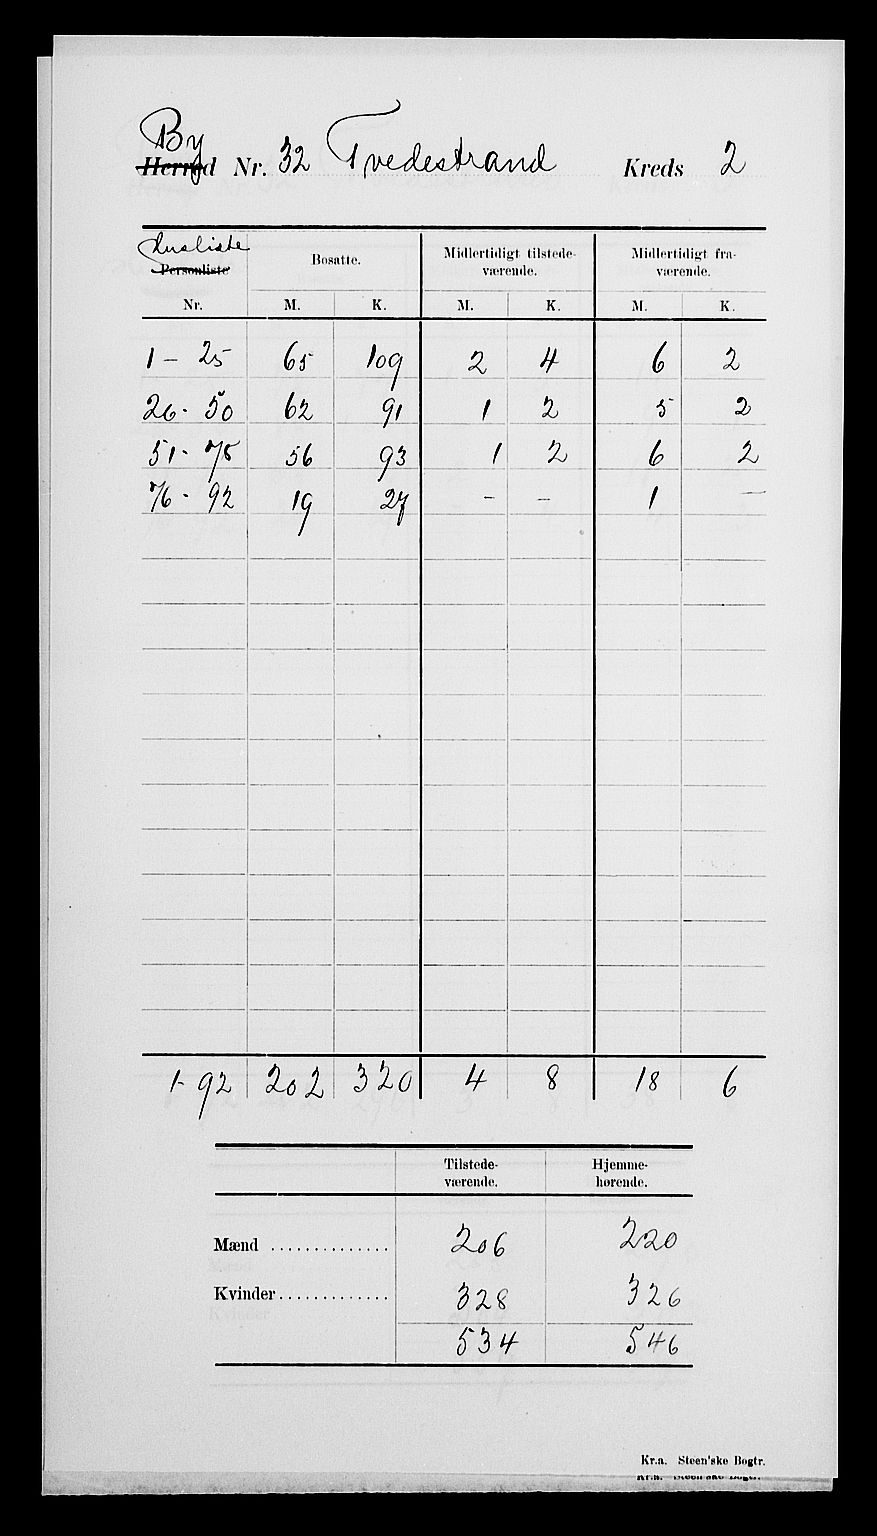 By
Herred Nr. 32 Tvedestrand Kreds 2
Husliste
Personliste Nr. Bosatte. Midlertidigt tilstedeværende. Midlertidigt fraværende.
M. K. M. K. M. K.
1 - 25 65 109 2 4 6 2
26 - 50 62 91 1 2 5 2
51 - 75 56 93 1 2 6 2
76 - 92 19 27 - - 1 -
1 - 92 202 320 4 8 18 6
Tilstede- Hjemme-
værende. hørende.
Mænd .............. 206 220
Kvinder ............. 328 326
534 546
Kr.a. Steen'ske Bogtr.
Kr.a. Steen'ske Bogtr.